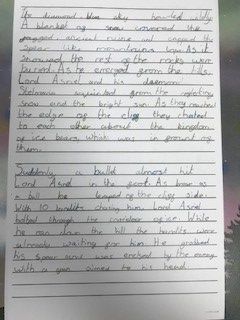 The diamond blue sky howled wildly.
A blanket of snow covered the
ancient ruins and caused the
spear like mountains up. As it
snowed the rest of the rocks were
buried. As he emerged from the hills,
Lord Asriel and his daemon
Stelmaria squinted from the
snow and the bright sun. As they reached
the edge of the cliff they chatted
to each other about the kingdom
of ice bears, which was in front of
them.
Suddenly a bullet almost hit
Lord Asriel in the foot. As brave as
a bull he leaped of the cliffs side.
With 10 bandits chasing him Lord Asriel
bolted through the corridoor of ice. While
he ran down the hill the bandits were
already waiting for him. He grabbed
his spear and was by the enemy
with a gun aimed to his head.